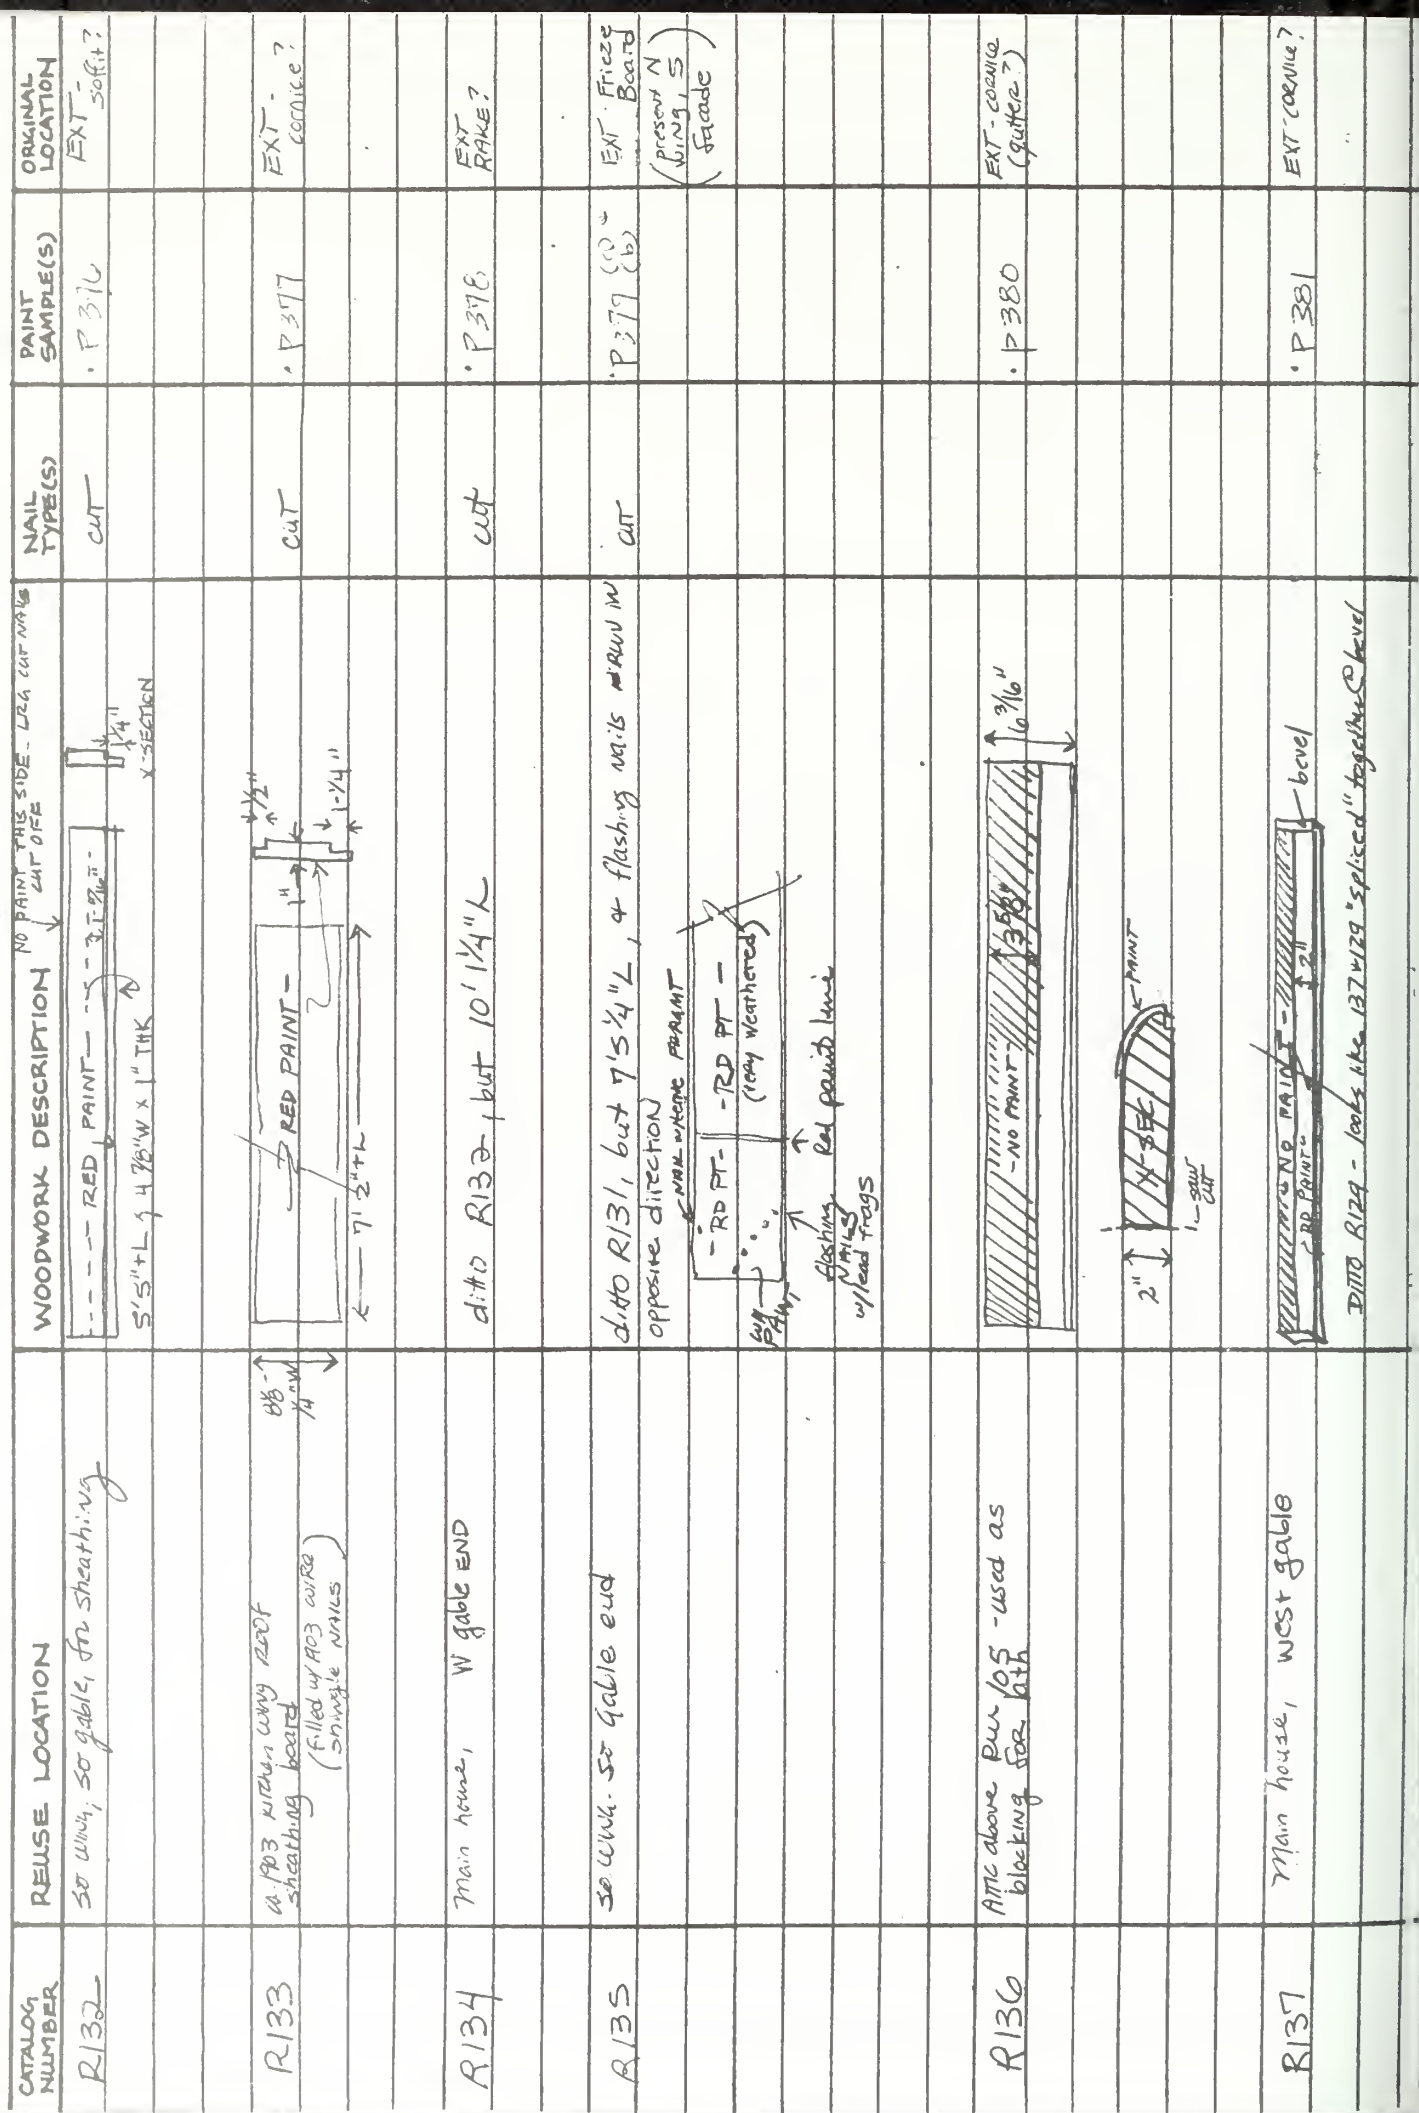 CATALOG NUMBER
REUSE LOCATION
WOODWORK DESCRIPTION
NAIL TYPE(S)
PAINT SAMPLE(S)
ORIGINAL LOCATION
R132
so wing, so gable, for sheathing
NO PAINT THIS SIDE - LRG CUT NAILS
CUT OFF
RED PAINT
1/4"
X-SECTION
5'5"+L 4 7/8"W x 1" THK
CUT
P376
EXT - soffit?
R133
ca. 1903 kitchen wing roof
sheathing board
(filled w/ 1903 wire
shingle nails)
RED PAINT
1"
1/2"
1-1/4"
7' 2"+L
cut
P377
EXT - cornice?
R134
Main house, W gable END
ditto R132, but 10' 1 1/4" L
cut
P378
EXT RAKE?
R135
so. wing - so gable end
ditto R131, but 7'5 1/4"L, & flashing nails RUN IN
opposite direction
-RD PT- -RD PT-
(very weathered)
flashing
NAILS
w/lead frags
Red paint line
cut
P377
(b)
EXT - Frieze
Board
(present N
wing, S
facade)
R136
Attic above Rm 105 - used as
blocking for lath
-NO PAINT-
6 3/16"
2"
X-SEC
PAINT
SAW CUT
P380
EXT - CORNICE
(gutter?)
R137
Main house, west gable
NO PAINT
RD PAINT
2"
bevel
DITTO R129 - looks like 137 & 129 "spliced" together @ bevel
P381
EXT - CORNICE?